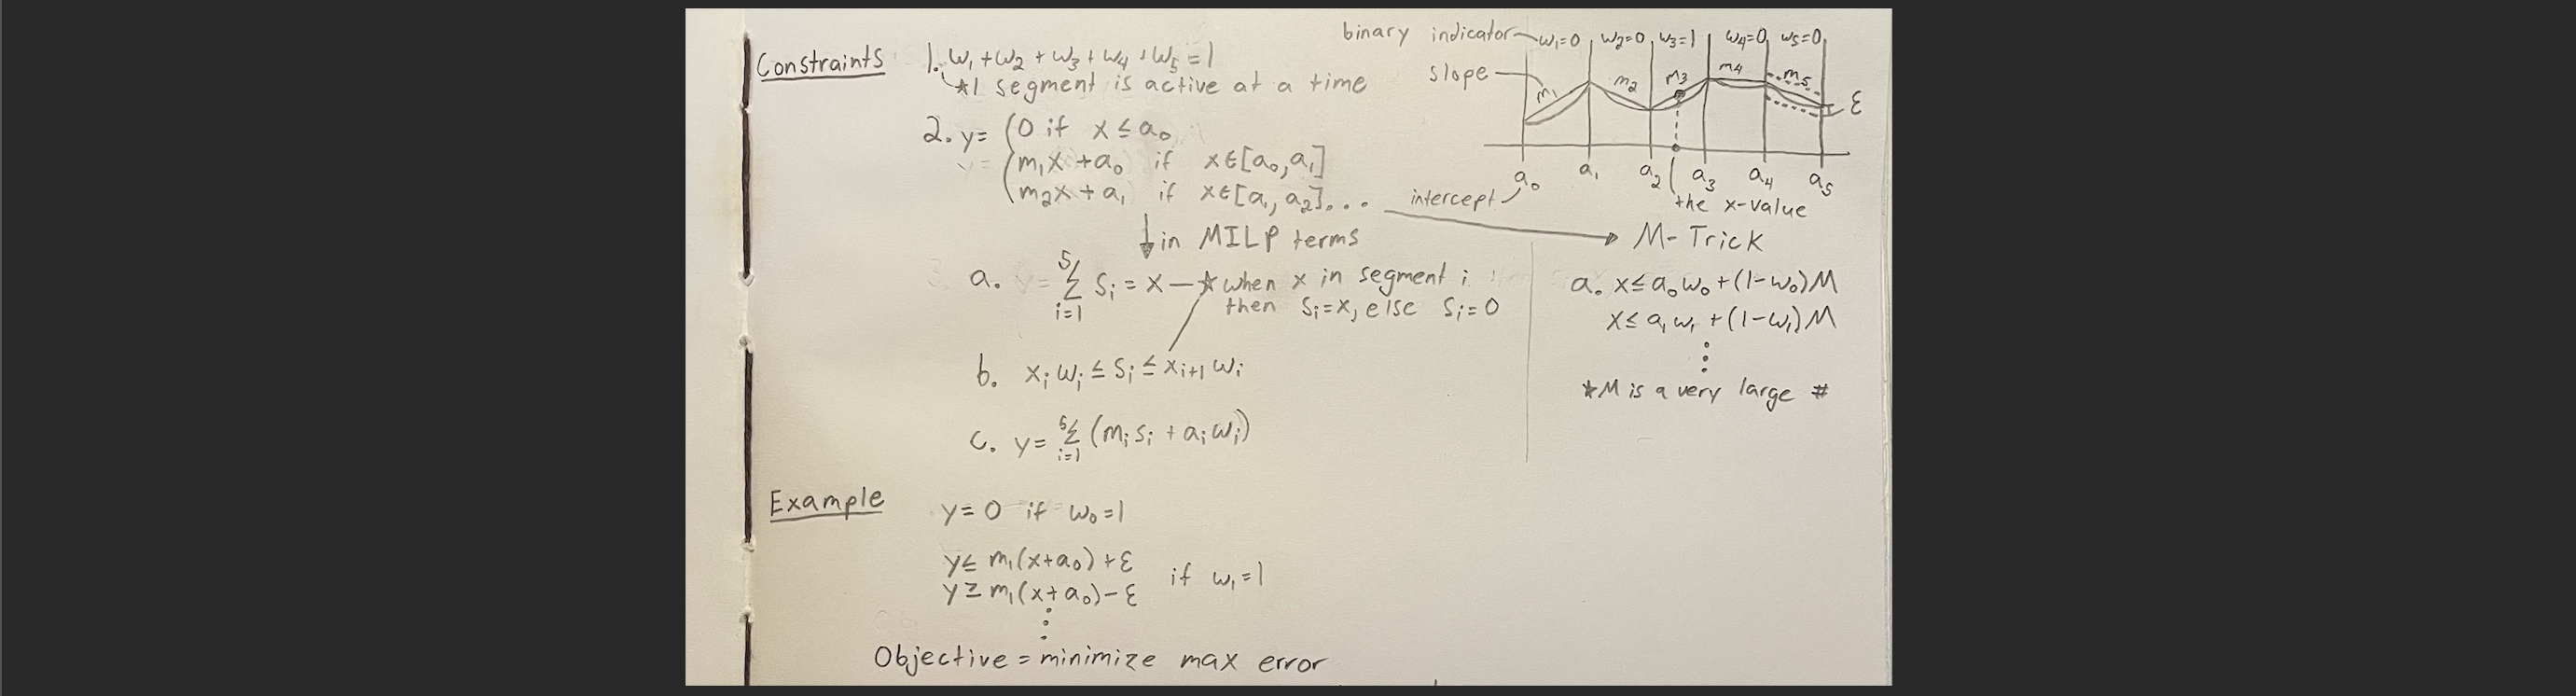 Constraints
1. w₁ + w₂ + w₃ + w₄ + w₅ = 1
*1 segment is active at a time
2. y = (0 if x ≤ a₀
(m₁x + a₀ if x∈[a₀, a₁]
(m₂x + a₁ if x∈[a₁, a₂]...
↓ in MILP terms
a. 5 Σ i=1 Sᵢ = x — *when x in segment i
then Sᵢ=x, else Sᵢ=0
b. xᵢ wᵢ ≤ Sᵢ ≤ xᵢ₊₁ wᵢ
c. y = 5 Σ i=1 (mᵢ sᵢ + aᵢ wᵢ)
binary indicator w₁=0 w₂=0 w₃=1 w₄=0 w₅=0
slope m₁ m₂ m₃ m₄ m₅ ε
a₀ a₁ a₂ a₃ a₄ a₅
intercept
the x-value
M-Trick
a. x ≤ a₀w₀ + (1-w₀)M
x ≤ a₁w₁ + (1-w₁)M
⋮
*M is a very large #
Example
y = 0 if w₀=1
y ≤ m₁(x+a₀) + ε
y ≥ m₁(x+a₀) - ε if w₁=1
⋮
Objective = minimize max error